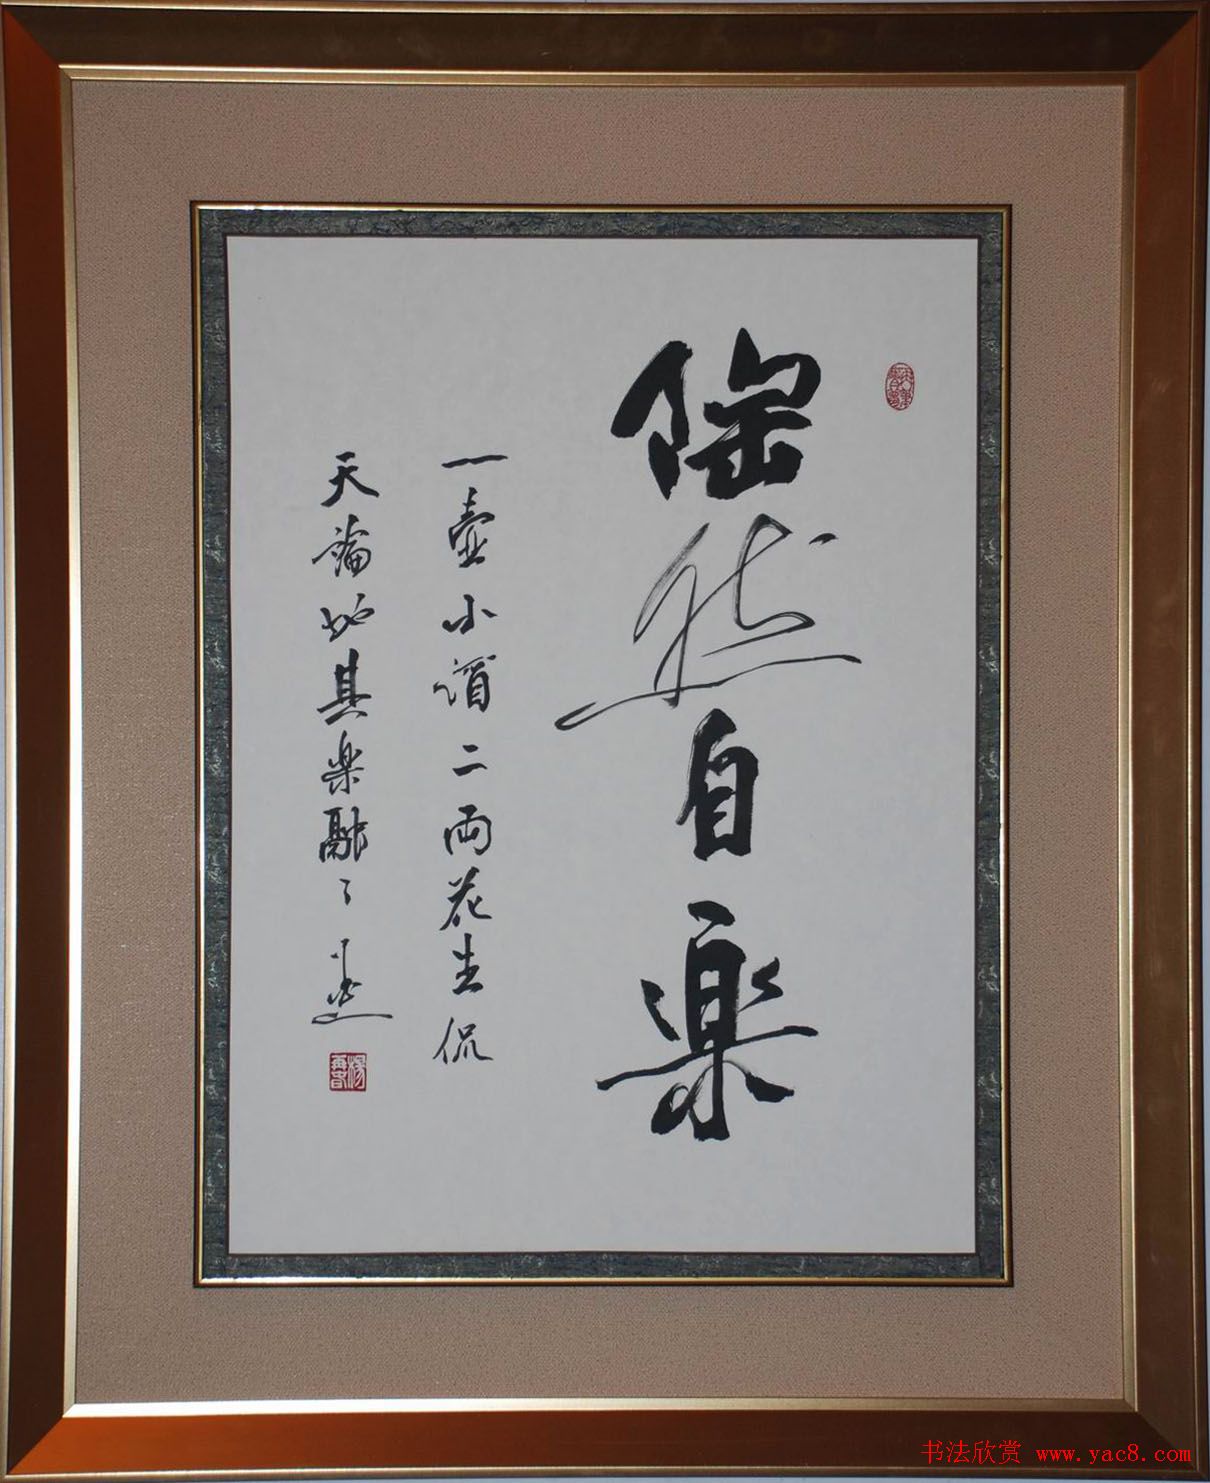 陶然自楽
一壺小酒二両花生侃
天論地其楽融々
书法欣赏 www.yac8.com